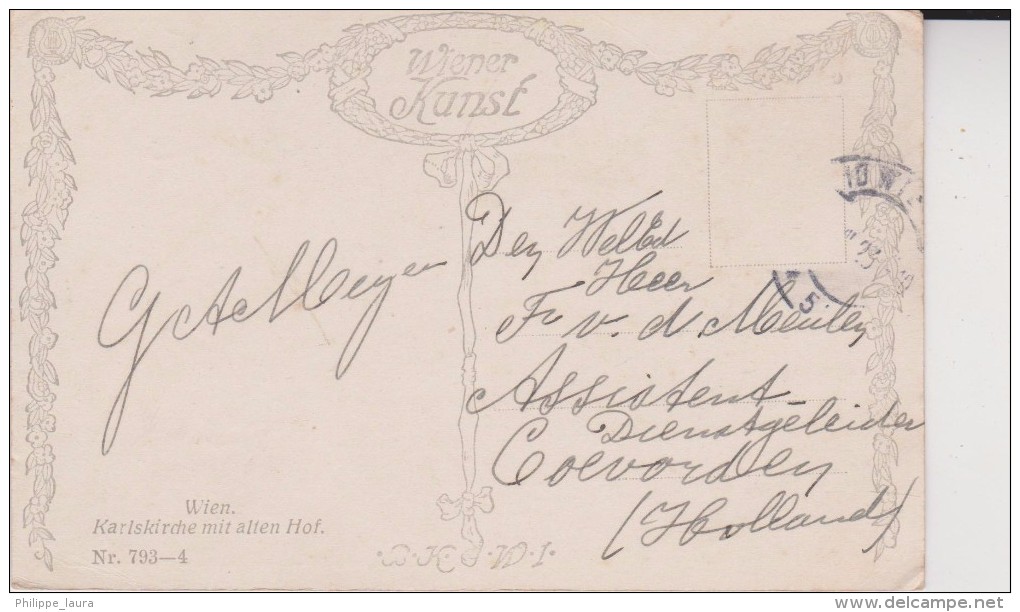 Wiener
Kunst
10 WIE
23
5
Den WelEd
Heer
Fr v. d. Meulen
Assistent-
Dienstgeleider
Coevorden
(Holland)
G A Meyer
Wien.
Karlskirche mit alten Hof.
Nr. 793—4
B.K.W.I.
Philippe_laura
www.delcampe.net